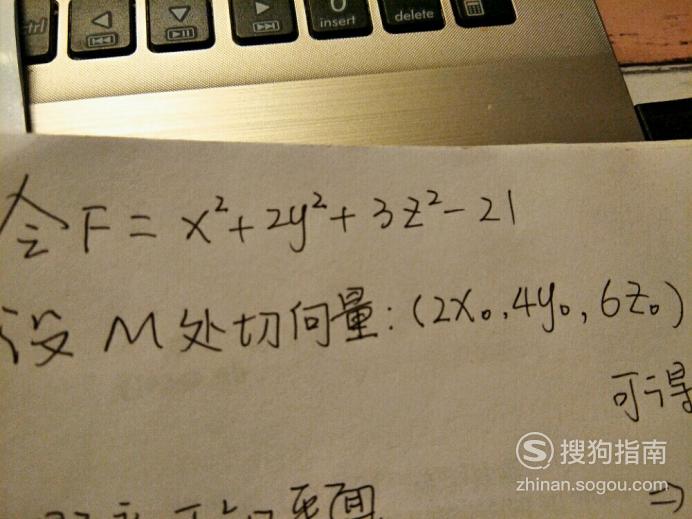 insert
delete
令F=x²+2y²+3z²-21
设M处切向量:(2x₀,4y₀,6z₀)
可得
⇒
搜狗指南
zhinan.sogou.com